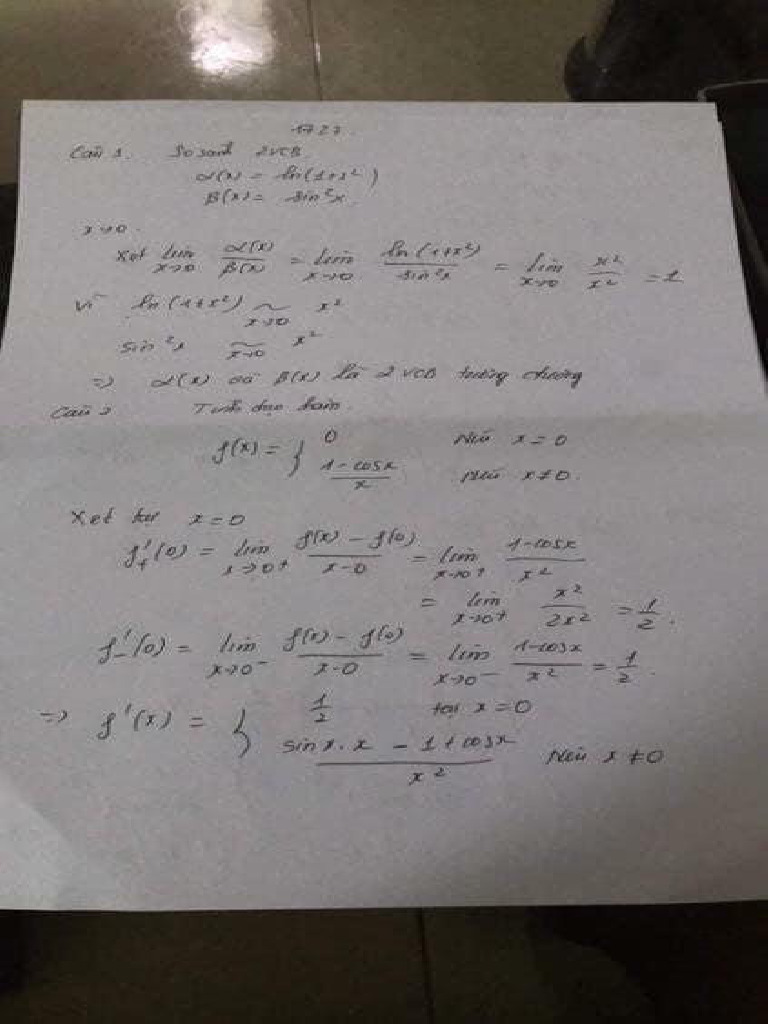 1727.
Câu 1. So sánh 2 VCB
α(x) = ln(1+x²)
β(x) = sin²x
x→0.
Xét lim x→0 α(x)/β(x) = lim x→0 ln(1+x²)/sin²x = lim x→0 x²/x² = 1
Vì ln(1+x²) ~ x→0 x²
sin²x ~ x→0 x²
=> α(x) và β(x) là 2 VCB tương đương
Câu 2 Tính đạo hàm.
f(x) = { 0 Nếu x = 0
(1-cosx)/x Nếu x ≠ 0.
Xét tại x = 0
f'₊(0) = lim x→0+ (f(x) - f(0))/(x-0) = lim x→0+ (1-cosx)/x²
= lim x→0+ x²/2x² = 1/2.
f'₋(0) = lim x→0- (f(x) - f(0))/(x-0) = lim x→0- (1-cosx)/x² = 1/2.
=> f'(x) = { 1/2 tại x = 0
(sinx.x - 1 + cosx)/x² Nếu x ≠ 0